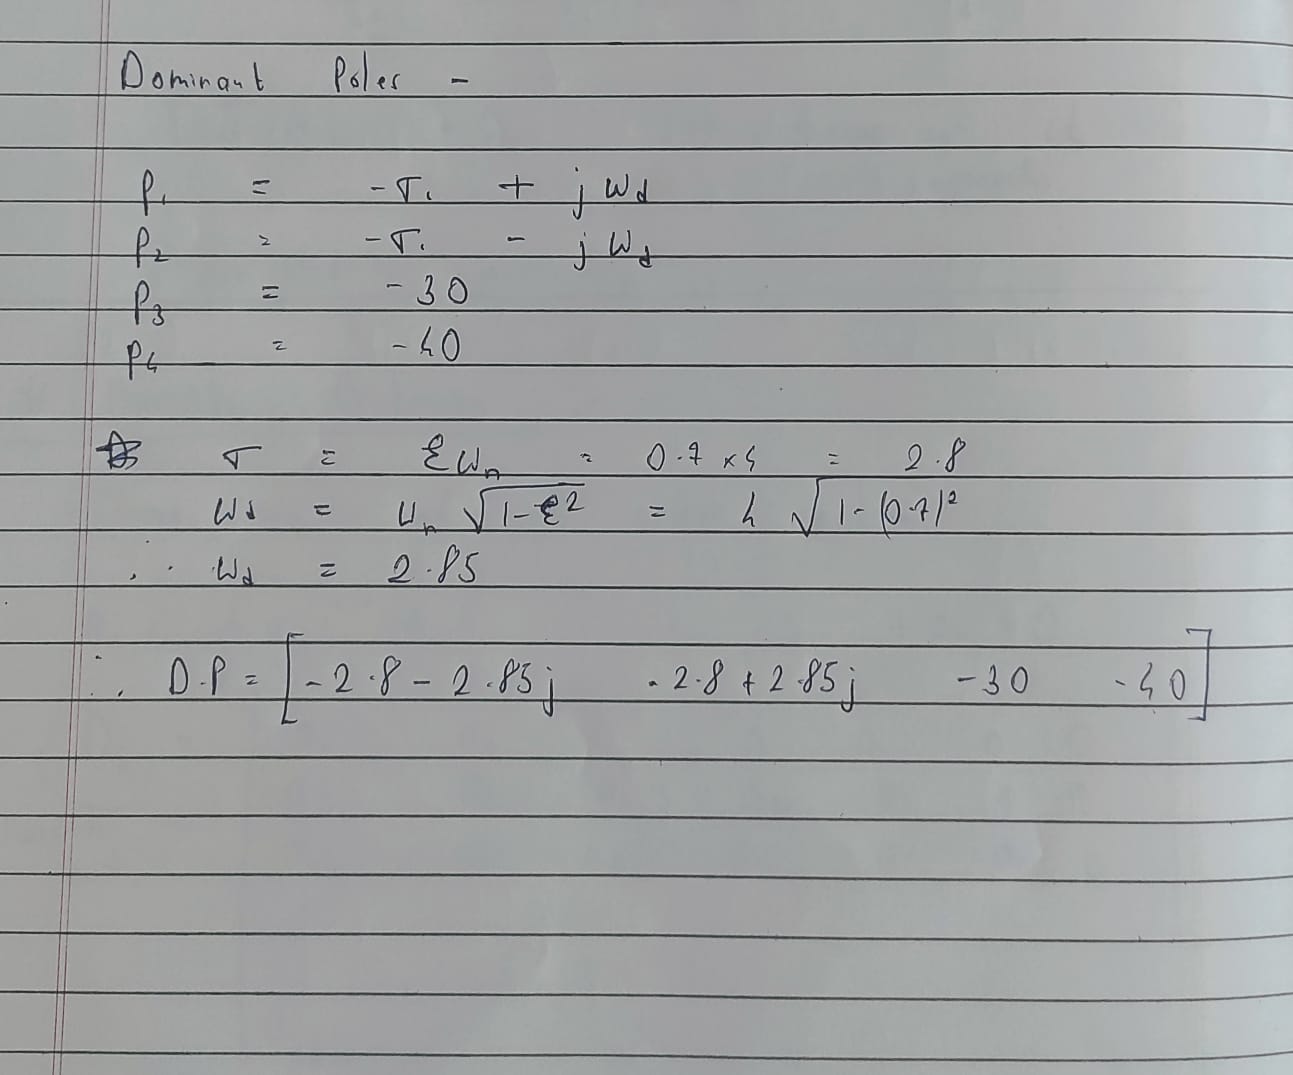 Dominant Poles -
P₁ = -σ₁ + jωd
P₂ = -σ₁ - jωd
P₃ = -30
P₄ = -40
σ = ξωn = 0.7 x 4 = 2.8
ωd = ωn √1-ξ² = 4 √1-(0.7)²
∴ ωd = 2.85
∴ D.P = [-2.8 - 2.85j -2.8 + 2.85j -30 -40]